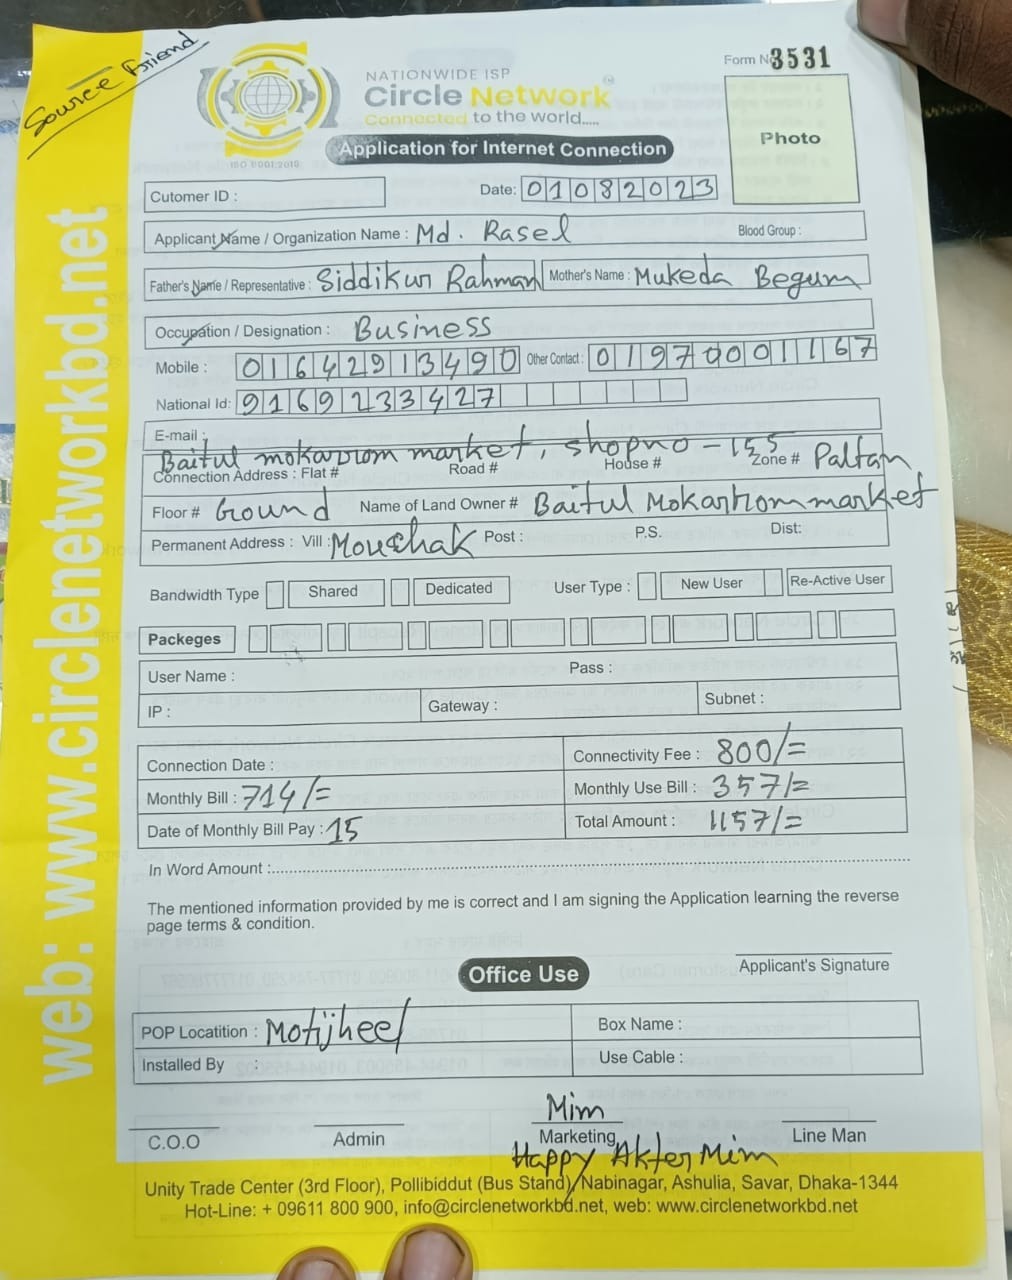 Source Friend
Form No 3531
NATIONWIDE ISP
Circle Network
Connected to the world.....
ISO 9001:2015
Application for Internet Connection
Photo
Cutomer ID :
Date: 01082023
Applicant Name / Organization Name : Md. Rasel Blood Group :
Father's Name / Representative : Siddikur Rahman Mother's Name : Mukeda Begum
Occupation / Designation : Business
Mobile : 01642913490 Other Contact : 01970001167
National Id: 9169233427
E-mail :
Baitul mokarrom market, shopno - 155 Paltan
Connection Address : Flat # Road # House # Zone #
Floor # Ground Name of Land Owner # Baitul Mokarrom market
Permanent Address : Vill : Mouchak Post : P.S. Dist:
Bandwidth Type Shared Dedicated User Type : New User Re-Active User
Packeges
User Name : Pass :
IP : Gateway : Subnet :
Connection Date : Connectivity Fee : 800/=
Monthly Bill : 714/= Monthly Use Bill : 357/=
Date of Monthly Bill Pay : 15 Total Amount : 1157/=
In Word Amount :
The mentioned information provided by me is correct and I am signing the Application learning the reverse
page terms & condition.
Applicant's Signature
Office Use
POP Locatition : Motijheel Box Name :
Installed By : Use Cable :
Mim
C.O.O Admin Marketing Line Man
Happy Akter Mim
Unity Trade Center (3rd Floor), Pollibiddut (Bus Stand), Nabinagar, Ashulia, Savar, Dhaka-1344
Hot-Line: + 09611 800 900, info@circlenetworkbd.net, web: www.circlenetworkbd.net
web: www.circlenetworkbd.net